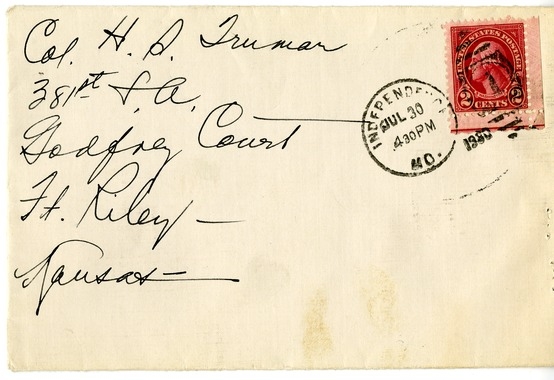 Col. H. S. Truman
381st F.A.
Godfrey Court
Ft. Riley
Kansas
UNITED STATES POSTAGE
2 CENTS 2
INDEPENDENCE
JUL 30
4 30 PM
MO.
1930